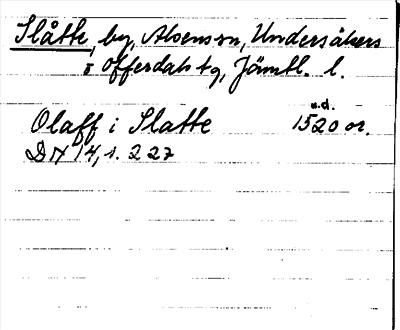 Slåtte, by, Alsens sn, Undersåkers
o Offerdals tg, Jämtl. l.
u.d.
Olaff i Slatte 1520 or.
DN 14, s. 227